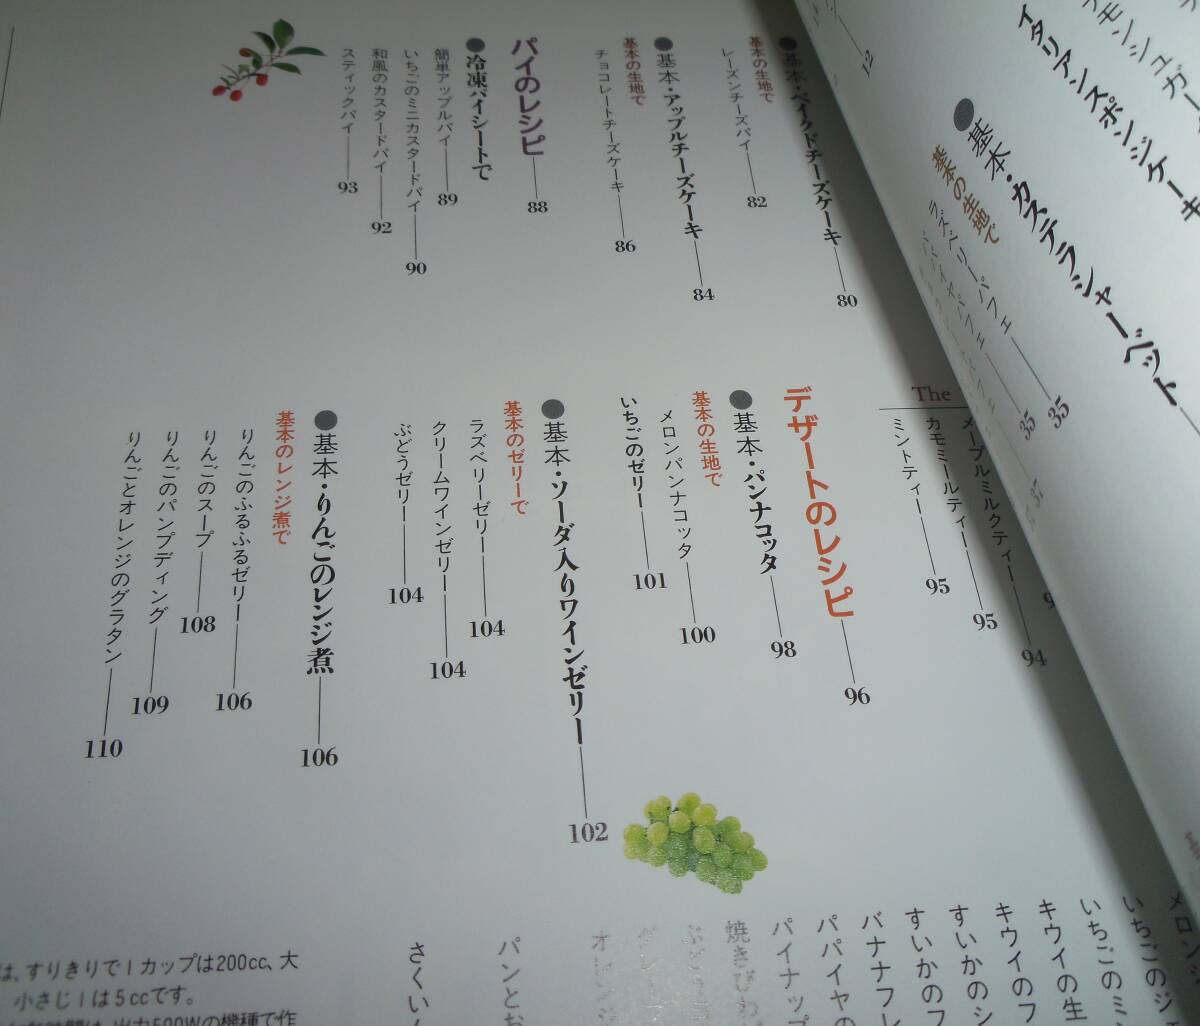 イタリアンスポンジケーキ
●基本・カステラシャーベット
基本の生地で
ラズベリーパフェ 35
35
37
●基本・ベイクドチーズケーキ 80
基本の生地で
レーズンチーズパイ 82
●基本・アップルチーズケーキ 84
基本の生地で
チョコレートチーズケーキ 86
パイのレシピ 88
●冷凍パイシートで
簡単アップルパイ 89
いちごのミニカスタードパイ 90
和風のカスタードパイ 92
スティックパイ 93
The
メープルミルクティー 94
カモミールティー 95
ミントティー 95
デザートのレシピ 96
●基本・パンナコッタ 98
基本の生地で
メロンパンナコッタ 100
いちごのゼリー 101
●基本・ソーダ入りワインゼリー 102
基本のゼリーで
ラズベリーゼリー 104
クリームワインゼリー 104
ぶどうゼリー 104
●基本・りんごのレンジ煮 106
基本のレンジ煮で
りんごのふるふるゼリー 106
りんごのスープ 108
りんごのパンプディング 109
りんごとオレンジのグラタン 110
メロンジ
いちごのジ
いちごのミ
キウイの生
キウイのフ
すいかのシ
すいかのフ
バナナフレ
パパイヤの
パイナップ
焼きびわ
パンとお
さくい
は、すりきりで1カップは200cc、大
小さじ1は5ccです。
出力500Wの機種で作